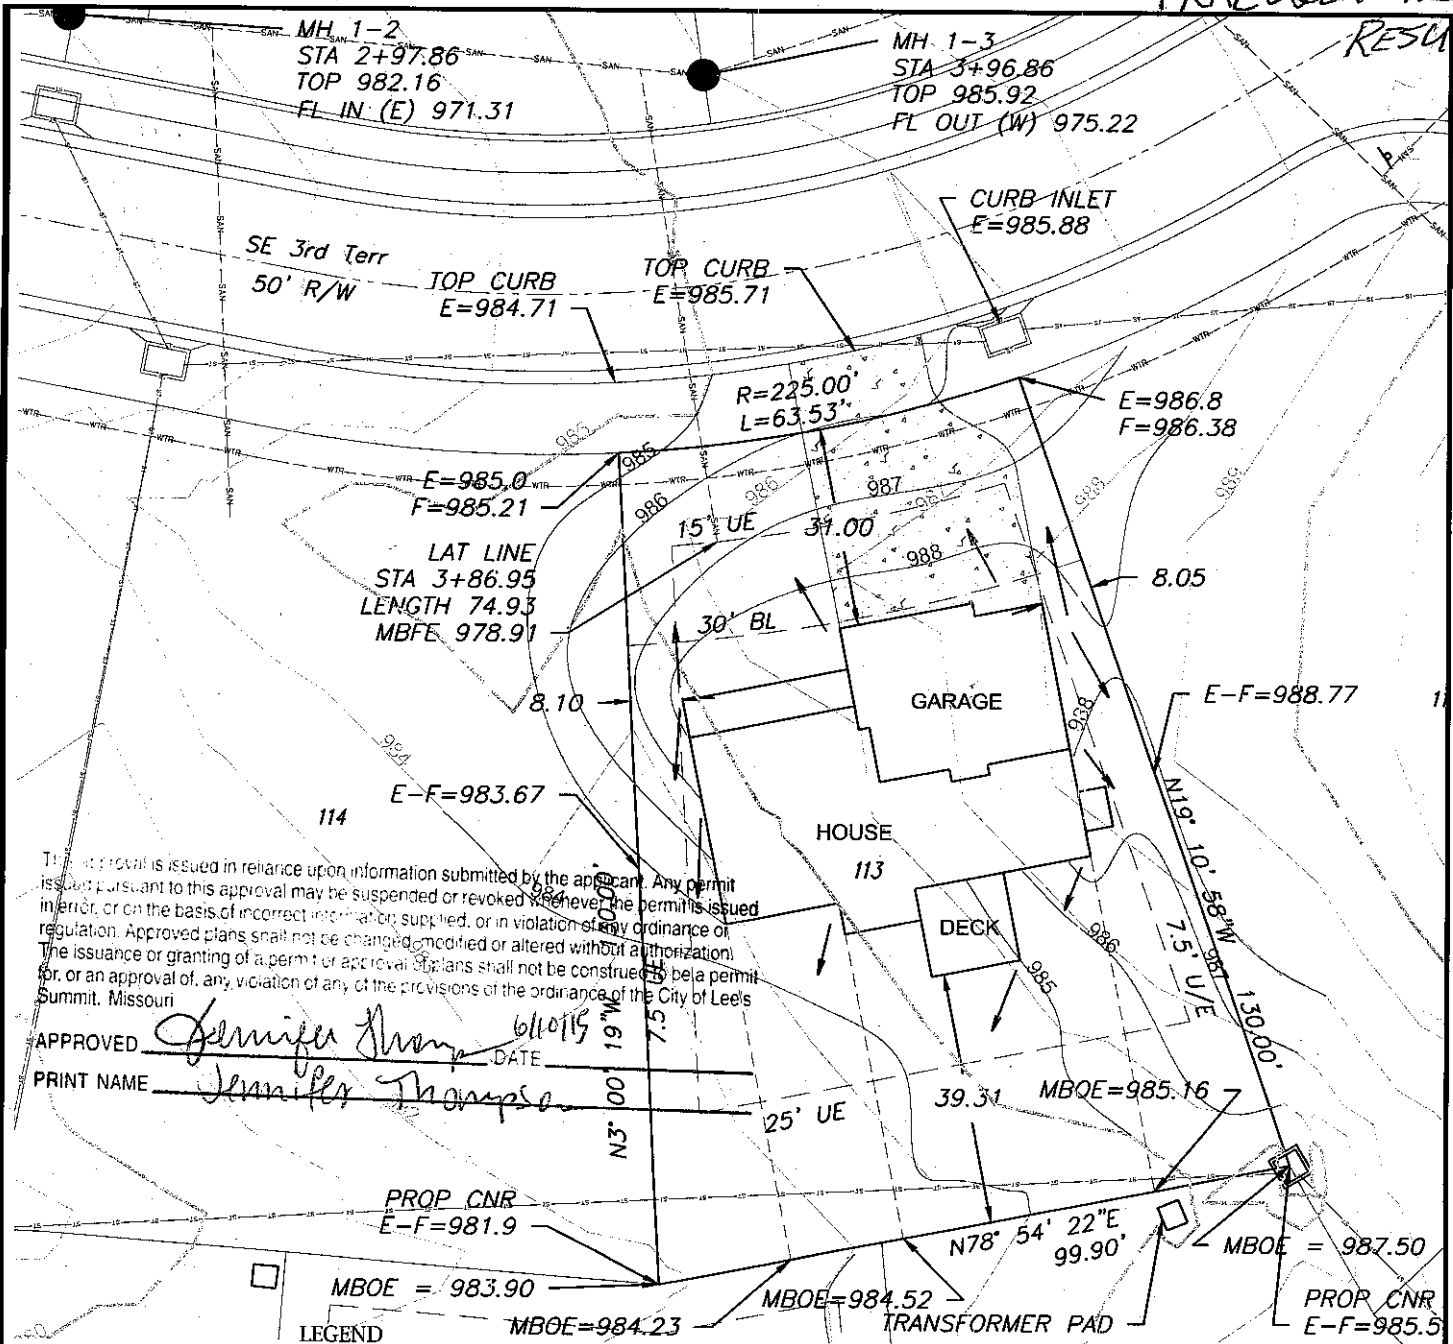 RESU
MH 1-2
STA 2+97.86
TOP 982.16
FL IN (E) 971.31
MH 1-3
STA 3+96.86
TOP 985.92
FL OUT (W) 975.22
CURB INLET
E=985.88
SE 3rd Terr
50' R/W
TOP CURB
E=984.71
TOP CURB
E=985.71
R=225.00'
L=63.53'
E=986.8
F=986.38
E=985.0
F=985.21
985
985
986
986
987
987
988
988
988
989
15' UE
31.00
LAT LINE
STA 3+86.95
LENGTH 74.93
MBFE 978.91
30' BL
8.05
8.10
GARAGE
E-F=988.77
984
E-F=983.67
114
HOUSE
113
DECK
N19° 10' 58"W 130.00'
7.5' U/E
987
986
985
This approval is issued in reliance upon information submitted by the applicant. Any permit
issued pursuant to this approval may be suspended or revoked whenever the permit is issued
in error, or on the basis of incorrect information supplied, or in violation of any ordinance or
regulation. Approved plans shall not be changed, modified or altered without authorization.
The issuance or granting of a permit or approval of plans shall not be construed to be a permit
for, or an approval of, any violation of any of the provisions of the ordinance of the City of Lee's
Summit, Missouri
984
APPROVED Jennifer Thomp DATE 6/10/15
PRINT NAME Jennifer Thompson
N3° 00' 19"W
7.5' UE
25' UE
39.31
MBOE=985.16
PROP CNR
E-F=981.9
N78° 54' 22"E
99.90'
MBOE = 987.50
MBOE = 983.90
MBOE=984.23
MBOE=984.52
TRANSFORMER PAD
PROP CNR
E-F=985.5
LEGEND